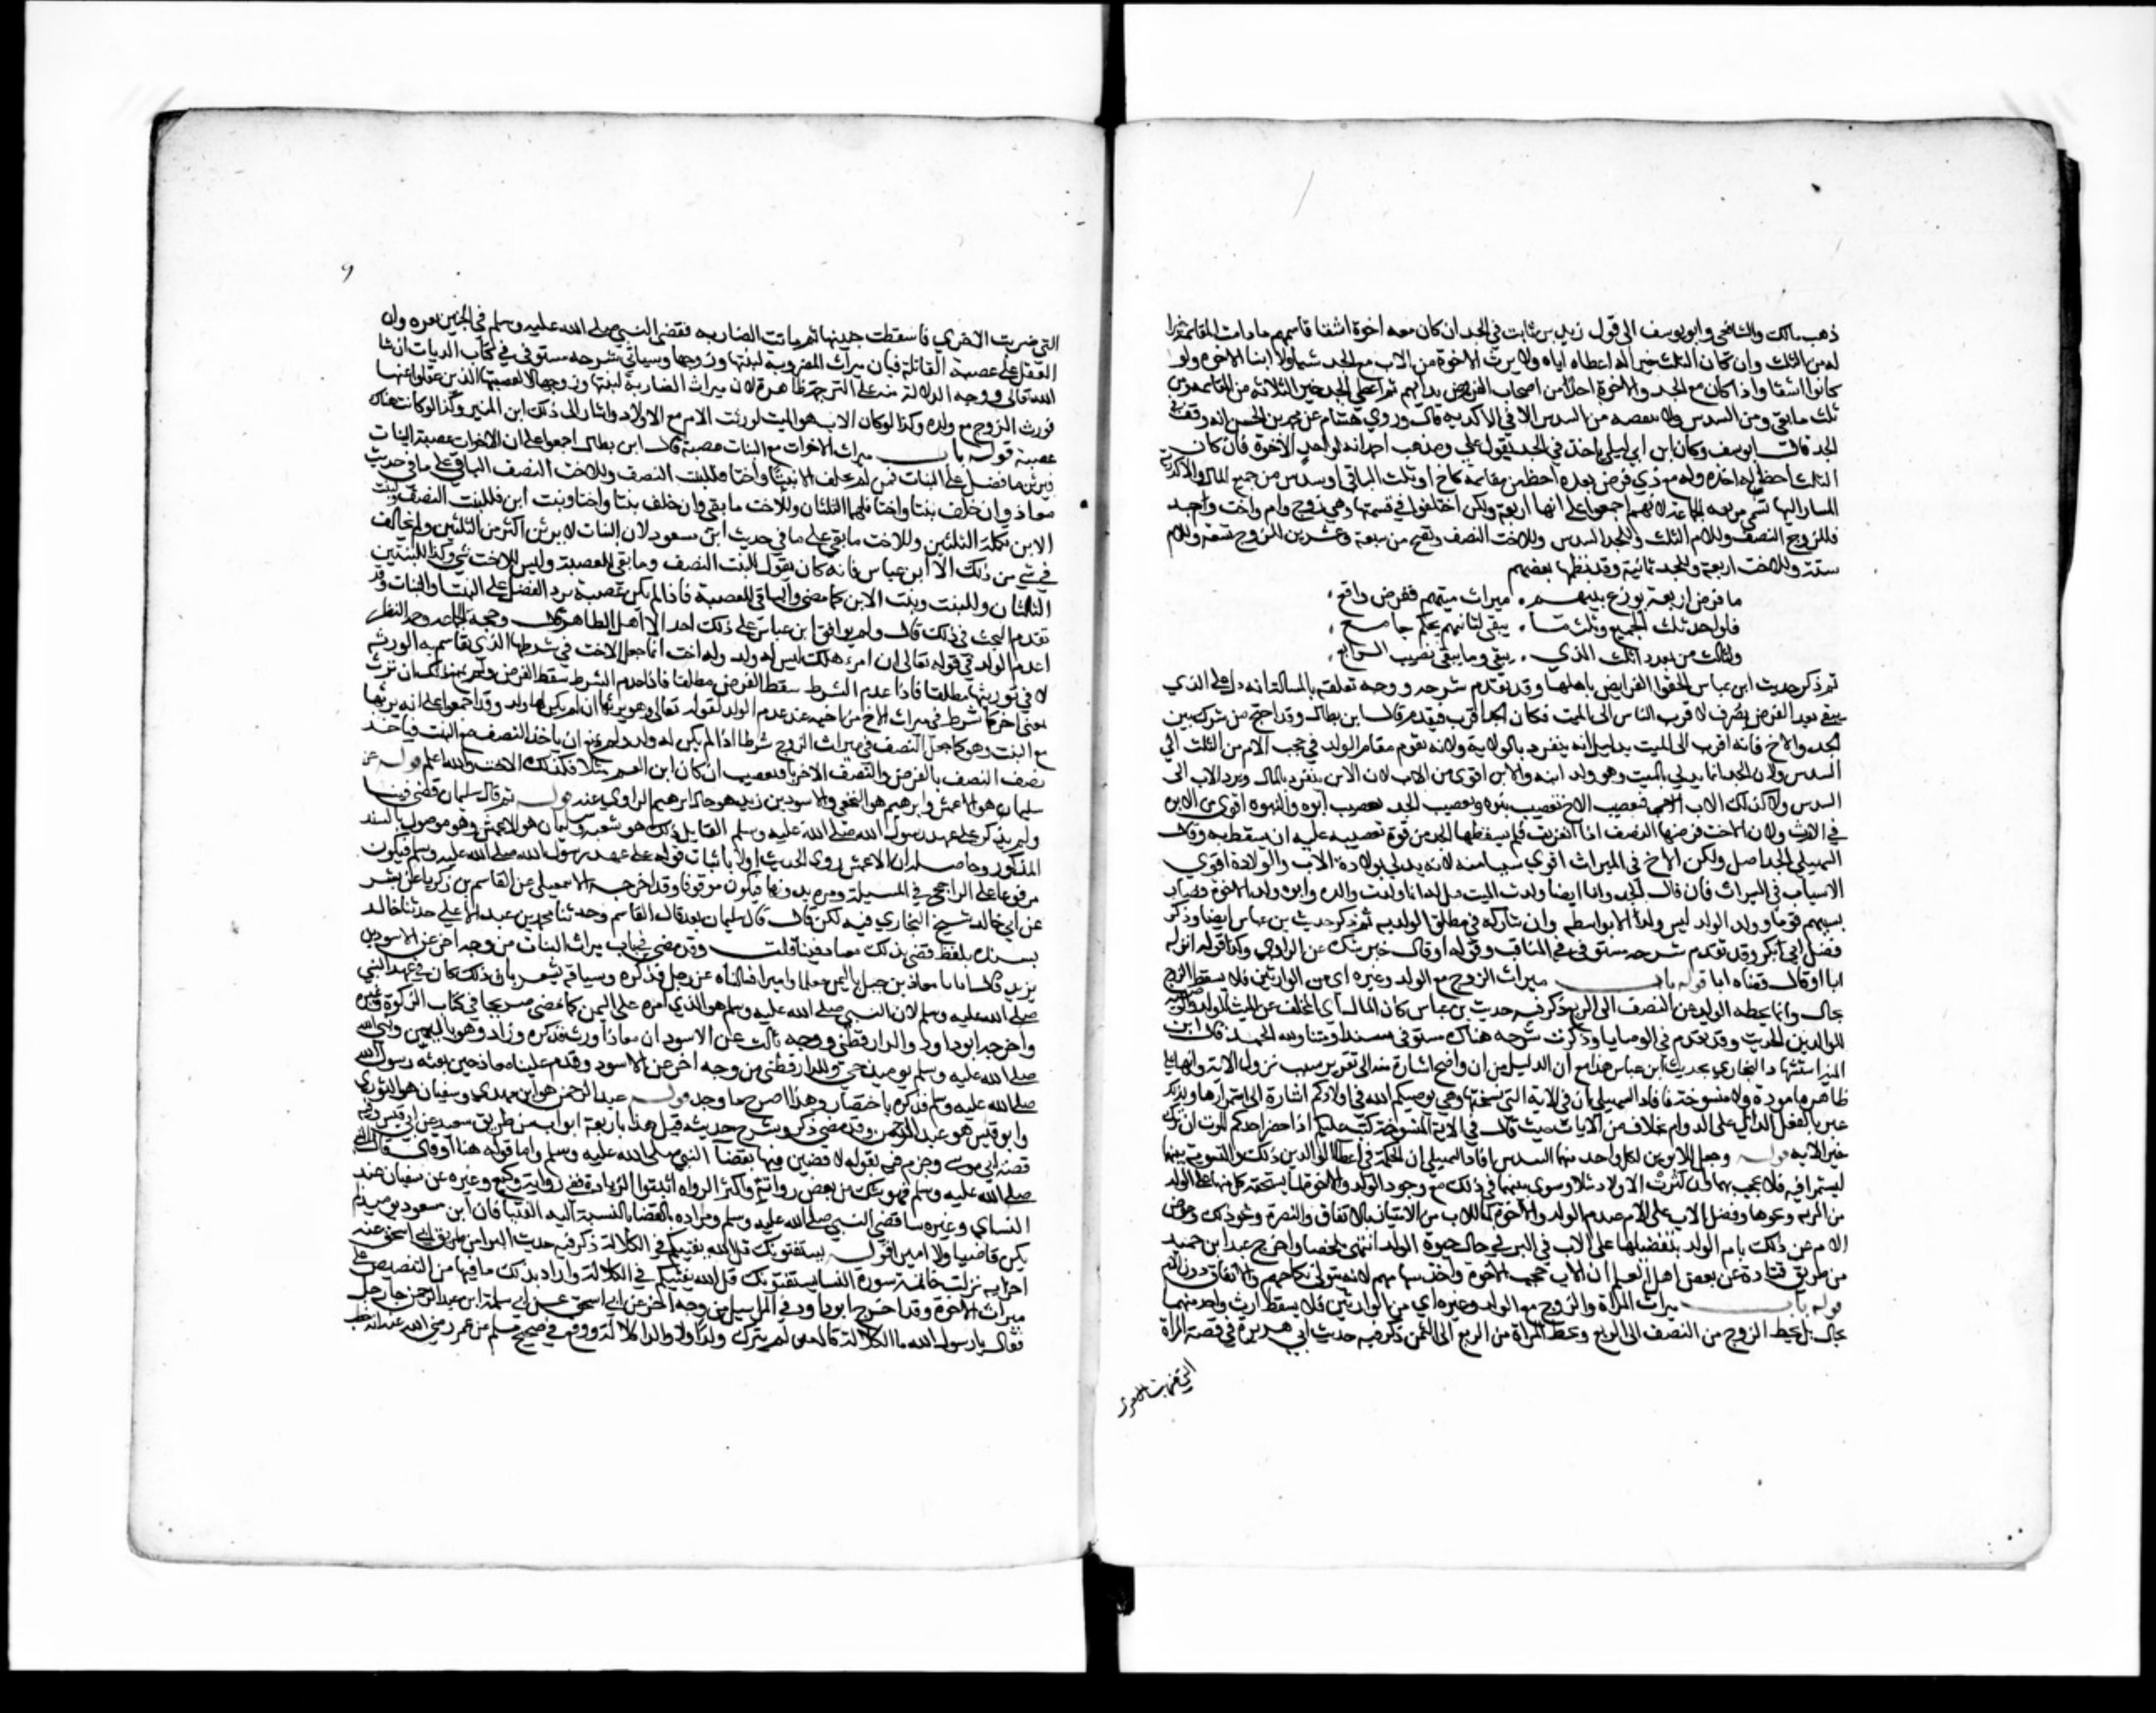 ذهب مالك والشافعي وابو يوسف الى قول زيد بن ثابت في الجد ان كان معه اخوة اشقا قاسمهم ما دامت المقاسمة خيرا
له من الثلث وان كان الثلث خيرا له اعطاه اياه ولا يرث الاخوة من الاب مع الجد شيا ولا ابنا الاخوة ولو
كانوا اشقا واذا كان مع الجد والاخوة احد من اصحاب الفروض بدا بهم ثم اعطي الجد خير الثلاثة من المقاسمة ومن
ثلث ما بقي ومن السدس ولا ينقصه من السدس الا في الاكدرية قال وروي هشام عن محمد بن الحسن انه وقف في
الجد قال ابو يوسف وكان ابن ابي ليلى ياخذ في الجد بقول علي ومذهب احمد انه كواحد الاخوة فان كان
الثلث احظ له اخذه وله مع ذي فرض بعده احظ من مقاسمة كاخ او ثلث الباقي او سدس من جميع المال والاكدرية
المشار اليها تسمى مربعة الجماعة لانهم اجمعوا على انها اربعة ولكن اختلفوا في قسمتها وهي زوج وام واخت وجد
فللزوج النصف وللام الثلث وللجد السدس وللاخت النصف وتصح من سبعة وعشرين للزوج تسعة وللام
ستة وللاخت اربعة وللجد ثمانية وقد نظمها بعضهم
ما فرض اربعة يوزع بينهم ميراث ميتهم بفرض واقع
فلواحد ثلث الجميع وثلث ما يبقى لثانيهم بحكم جامع
ولثالث من بعد ذا ثلث الذي يبقى وما يبقى نصيب الرابع
ثم ذكر حديث ابن عباس الحقوا الفرايض باهلها وقد تقدم شرحه ووجه تعلقه بالمسالة انه دل على ان الذي
يبقى بعد الفرض يصرف لاقرب الناس الى الميت فكان الجد اقرب فيقدم قال ابن بطال وقد احتج من شرك بين
الجد والاخ فانه اقرب الى الميت بدليل انه ينفرد بالولاية ولانه يقوم مقام الولد في حجب الام من الثلث الى
السدس ولان الجد انما يدلي بالميت وهو ولد ابنه والابن اقوى من الاب لان الابن ينفرد بالمال ويرد الاب الى
السدس ولا كذلك الاب الاخ فتعصيب الاخ تعصيب بنوة وتعصيب الجد تعصيب ابوة والبنوة اقوى من الابوة
في الارث ولان الاخت فرضها النصف اذا انفردت فلم يسقطها الجد من قوة تعصيبه عليه ان يسقط به وقال
السهيلي الجد اصل ولكن الاخ في الميراث اقوى سببا منه لانه يدلي بولادة الاب والولادة اقوى
الاسباب في الميراث فان قال الجد وانا ايضا ولدت الميت قيل له انما ولدت والده وابوه ولد الاخوة فصار
سببهم قويا وولد الولد ليس ولدا الا بواسطة وان شاركه في مطلق الولدية ثم ذكر حديث بن عباس ايضا وذكر
فضل ابي بكر وقد تقدم شرحه مستوفى في المناقب وقوله او قال خير شك من الراوي وكذا قوله انزله
ابا او قال قضاه ابا قوله باب ميراث الزوج مع الولد وغيره اي من الوارثين فلا يسقط الزوج
بحال وانما يحطه الولد عن النصف الى الربع وذكر فيه حديث بن عباس كان المال اي المخلف عن الميت للولد والوصية
للوالدين الحديث وقد تقدم في الوصايا وذكرت شرحه هناك مستوفى مسندا ومتنا ولله الحمد قال ابن
المنير استشهاد البخاري بحديث ابن عباس هذا مع ان الدليل من القران واضح اشارة منه الى تقرير سبب نزول الاية وانها على
ظاهرها غير مؤولة ولا منسوخة فافاد السهيلي ان في الاية التي نسختها وهي يوصيكم الله في اولادكم اشارة الى استمرارها ولذلك
عبر بالفعل الدال على الدوام بخلاف غيرها من الايات حيث قال في الاية المنسوخة كتب عليكم اذا حضر احدكم الموت ان ترك
خيرا الاية قوله وجعل للابوين لكل واحد منهما السدس افاد السهيلي ان الحكمة في اعطا الوالدين ذلك والتسوية بينهما
ليستمرا فيه فلا يجحف بهما ان كثرت الاولاد مثلا وسوى بينهما في ذلك مع وجود الولد والاخوة لما يستحقه كل منهما على الولد
من التربية ونحوها وفضل الاب على الام عند عدم الولد والاخوة لما للاب من الامتياز بالانفاق والنصرة ونحو ذلك وعوض
الام عن ذلك بامر الولد بتفضيلها على الاب في البر في حال حياة الولد انتهى ملخصا واخرج عبد بن حميد
من طريق قتادة عن بعض اهل العلم ان الاب حجب الاخوة واخذ سهامهم لانه يتولى نكاحهم والانفاق عليهم دون الام
قوله باب ميراث المراة والزوج مع الولد وغيره اي من الوارثين فلا يسقط ارث واحد منهما
بحال بل يحط الزوج من النصف الى الربع وتحط المراة من الربع الى الثمن وذكر فيه حديث ابي هريرة في قصة المراة
التي ضربت الاخرى
٩
التي ضربت الاخرى فاسقطت جنينها ثم ماتت الضاربة فقضى النبي صلى الله عليه وسلم في الجنين بغرة وان
العقل على عصبة القاتلة فبان ميراث المضروبة لبنتها وزوجها وسياتي شرحه مستوفى في كتاب الديات ان شا
الله تعالى ووجه الدلالة منه على الترجمة ظاهرة لان ميراث الضاربة لبنتها وزوجها لا لعصبتها الذين عقلوا عنها
فورث الزوج مع ولده وكذا لو كان الاب هو الميت لورثت الام مع الاولاد واشار الى ذلك ابن المنير وكذا لو كانت هناك
عصبة قوله باب ميراث الاخوات مع البنات عصبة قال ابن بطال اجمعوا على ان الاخوات عصبة البنات
فيرثن ما فضل على البنات فمن لم يخلف الا بنتا واختا فللبنت النصف وللاخت النصف الباقي على ما في حديث
معاذ وان خلف بنتا واختا فلهما الثلثان وللاخت ما بقي وان خلف بنتا واختا وبنت ابن فللبنت النصف ولبنت
الابن تكملة الثلثين وللاخت ما بقي على ما في حديث ابن مسعود لان البنات لا يرثن اكثر من الثلثين ولم يخالف
في شي من ذلك الا ابن عباس فانه كان يقول للبنت النصف وما بقي للعصبة وليس للاخت شي وكذا للبنتين
الثلثان وللبنت وبنت الابن كما مضى والباقي للعصبة فاذا لم يكن عصبة يرد الفضل على البنت والبنات وقد
تقدم البحث في ذلك قال ولم يوافق ابن عباس على ذلك احد الا اهل الظاهر قال وحجة الجماعة من جهة النظر
ان عدم الولد في قوله تعالى ان امرؤ هلك ليس له ولد وله اخت انما جعل الاخت في شرطها الذي تقاسم به الورثة
لا في توريثها مطلقا فاذا عدم الشرط سقط الفرض ولم يمنع ذلك ان ترث
بمعنى اخر كما شرط في ميراث الاخ من اخيه عند عدم الولد لقوله تعالى وهو يرثها ان لم يكن لها ولد وقد اجمعوا على انه يرثها
مع البنت وهو كما جعل النصف في ميراث الزوج شرطا اذا لم يكن له ولد ولم يمنع ان ياخذ النصف مع البنت فياخذ
نصف النصف بالفرض والنصف الاخر بالتعصيب ان كان ابن العم مثلا فكذلك الاخت والله اعلم قوله عن
سليمان هو الاعمش وابرهيم هو النخعي والاسود بن زيد هو خال ابرهيم الراوي عنه قوله ثم قال سليمان قضى فينا
ولم يذكر على عهد رسول الله صلى الله عليه وسلم القايل ذلك هو شعبة وسليمان هو الاعمش وهو موصول بالسند
المذكور وحاصله ان الاعمش روى الحديث اولا باثبات قوله على عهد رسول الله صلى الله عليه وسلم فيكون
مرفوعا على الراجح في المسيلة ومرة بدونها فيكون موقوفا وقد اخرجه الاسمعيلي عن القاسم بن زكريا عن بشر
عن ابي خالد شيخ البخاري فيه لكن قال قال سليمان بعد قال القاسم وحدثنا محمد بن عبد الاعلى حدثنا خالد
بسنده بلفظ قضى بذلك معاذ فينا قلت وقد مضى في باب ميراث البنات من وجه اخر عن الاسود بن
يزيد قال اتانا معاذ بن جبل باليمن معلما واميرا فسالناه عن رجل فذكره وسياقه يشعر بان ذلك كان في عهد النبي
صلى الله عليه وسلم لان النبي صلى الله عليه وسلم هو الذي امره على اليمن كما مضى صريحا في كتاب الزكوة وغيره
واخرجه ابو داود والدارقطني ووجه ثالث عن الاسود ان معاذا ورث فذكره وزاد وهو باليمن ونبي الله
صلى الله عليه وسلم يوميذ حي وللدارقطني من وجه اخر عن الاسود وقدم علينا معاذ حين بعثه رسول الله
صلى الله عليه وسلم فذكره باختصار وهذا اصرح ما وجد قوله عبد الرحمن هو ابن مهدي وسفيان هو الثوري
وابو قيس هو عبد الرحمن وقد مضى ذكره وشرح حديثه قبل هذا باربعة ابواب من طريق سعيد عن ابي قيس وفيه
قصة ابي موسى وجزم في بقوله لاقضين فيها بقضا النبي صلى الله عليه وسلم واما قوله هنا او قال قال النبي
صلى الله عليه وسلم فهو شك من بعض رواته واكثر الرواه اثبتوا الزيادة ففي رواية وكيع وغيره عن سفيان عند
النساي وغيره ساقضي النبي صلى الله عليه وسلم ومراده بالقضا بالنسبة اليه الفتيا فان ابن مسعود يوميذ لم
يكن قاضيا ولا اميرا قوله يستفتونك قل الله يفتيكم في الكلالة ذكر فيه حديث البرا من طريق ابي اسحق عنه
اخر اية نزلت خاتمة سورة النسا يستفتونك قل الله يفتيكم في الكلالة واراد بذلك ما فيها من التنصيص على
ميراث الاخوة وقد اخرج ابو داود في المراسيل من وجه اخر عن ابي اسحق عن ابي سلمة ابن عبد الرحمن جا رجل
فقال يا رسول الله ما الكلالة قال من لم يترك ولدا ولا والدا كلالة ووقع في صحيح مسلم عن عمر رضي الله عنه انه خطب